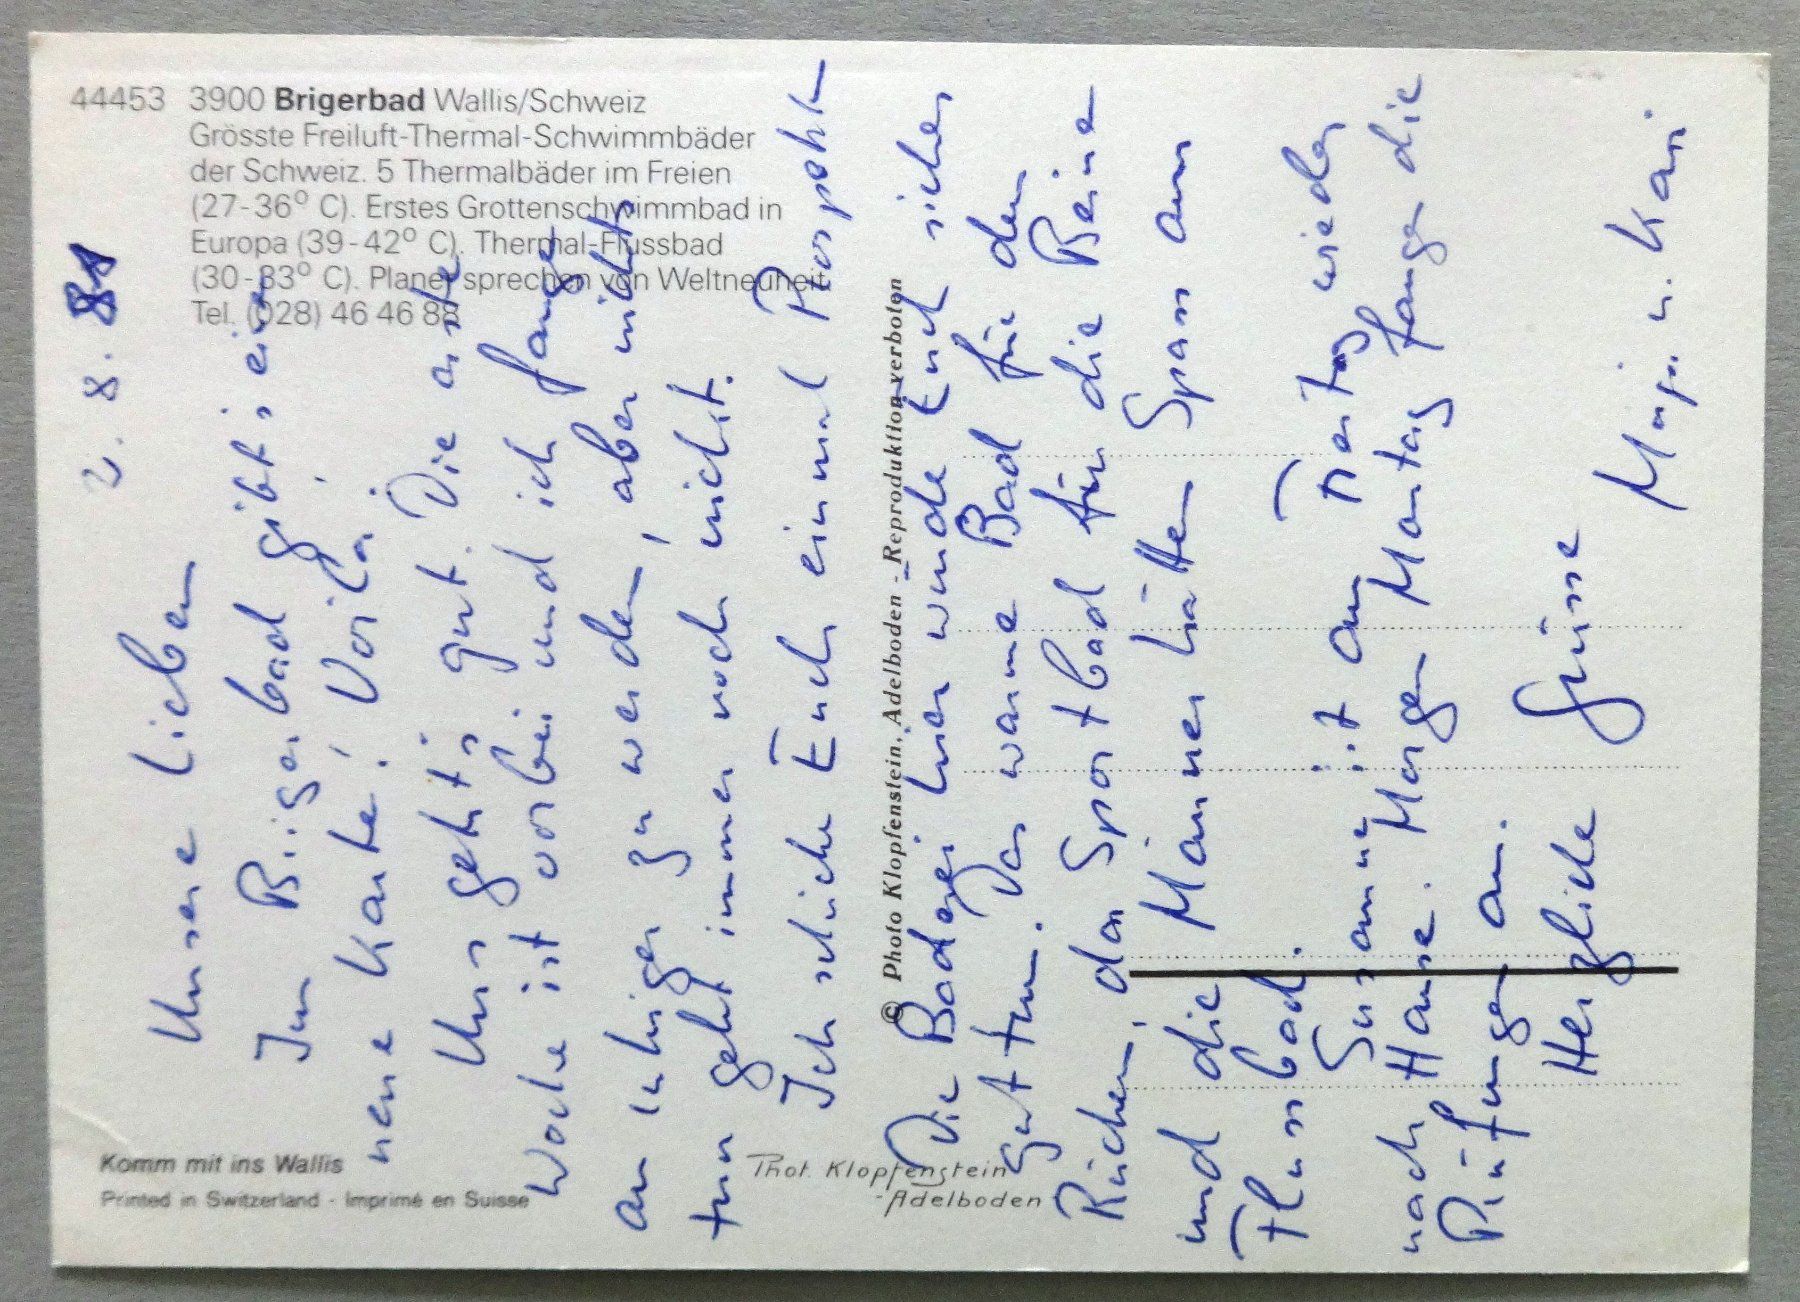 44453 3900 Brigerbad Wallis/Schweiz
Grösste Freiluft-Thermal-Schwimmbäder
der Schweiz. 5 Thermalbäder im Freien
(27-36° C). Erstes Grottenschwimmbad in
Europa (39-42° C). Thermal-Flussbad
(30-33° C). Planer sprechen von Weltneuheit.
Tel. (028) 46 46 88
2. 8. 81
Unsere Lieben
Im Brigerbad gibt's eine
neue Karte! Voilà!
Uns geht's gut. Die erste
Woche ist vorbei und ich fange
an ruhiger zu werden, aber nichts
tun geht immer noch nicht.
Ich schicke Euch einmal Prospekte
Die Baderei hier würde Euch sicher
gut tun. Das warme Bad für den
Rücken, das Sportbad für die Beine
und die Männer hätten Spass am
Flussbad.
Susanne ist am Freitag wieder
nach Hause. Morgen Montag fangen die
Prüfungen an.
Herzliche Grüsse
u. Kari
© Photo Klopfenstein, Adelboden - Reproduktion verboten
Komm mit ins Wallis
Printed in Switzerland - Imprimé en Suisse
Phot. Klopfenstein
-Adelboden